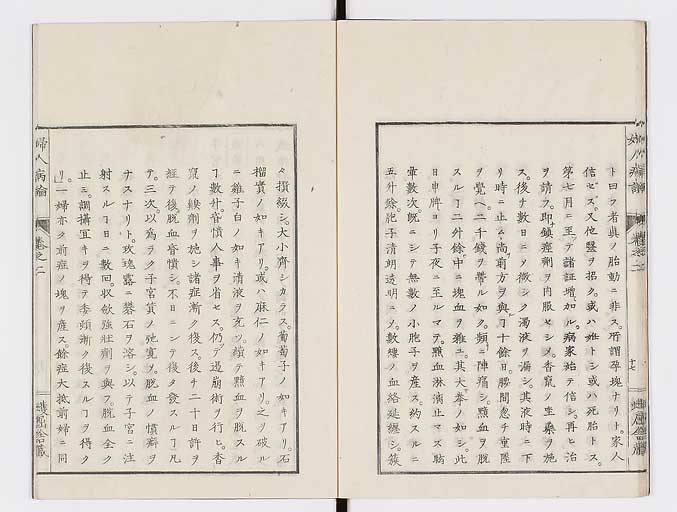 ト曰フ者眞ノ胎動ニ非ス。所謂孕塊ナリト。家人
信セズ。又他醫ヲ招ク。或ハ姙トシ或ハ死胎トス。
第七月ニ至テ諸証増加ル。病家始テ信シ。再ヒ治
ヲ請フ。即鎮痙劑ヲ内服セシメ。香竄ノ坐藥ヲ施
ス。後チ數日ニメ微シク濁液ヲ漏シ。其液時ニ下
リ時ニ止ム。尚前方ヲ與フヿ十餘日。勝間悤チ重墜
ヲ覺ヘ二千錢ヲ帶ル如ク。頻ニ陣痛シ。顆血ヲ脱
スルヿ二升餘。中ニ塊血ヲ雜ユ。其大拳ノ如シ。此
日申牌ヨリ子夜ニ至ルマテ。顆血淋漓止マス。眩
暈數次。既ニシテ無數ノ小胞子ヲ産ス。約スルニ
五升餘。胞子清朗透明ニメ。數縷ノ血絡延纒シ。簇
々攅綴シ。大小齊シカラス。葡萄子ノ如キアリ。石
榴實ノ如キアリ。或ハ麻仁ノ如キアリ。之ヲ破ル
ニ雞子白ノ如キ清液ヲ充ツ。續テ顆血ヲ脱スル
ヿ數升。昏憒人事ヲ省セス。仍テ遏崩術ヲ行ヒ。香
竄ノ緩劑ヲ施シ諸症漸ク復ス。後チ二十日許ヲ
經テ後。脱血昏憒シ。不日ニシテ復タ發スルヿ凡
テ三次。以爲ラク子宮質ノ弛寛ヲ。脱血ノ慣癖ヲ
ナスナリト。玫瑰露ニ礬石ヲ溶シ。以テ子宮ニ注
射スルヿ日ニ數回収歛強壯劑ヲ與フ。脱血全ク
止ミ。調攝宜キヲ得テ委頓漸ク復スルヿヲ得ク
リ。一婦亦タ前症ノ塊ヲ産ス。餘症大抵前婦ニ同
婦人病論
卷之二